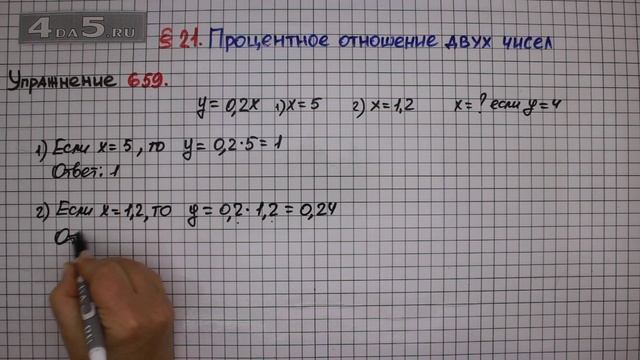 4DA5.RU
§ 21. Процентное отношение двух чисел
Упражнение 659.
y = 0,2x 1) x = 5 2) x = 1,2 x = ? если y = 4
1) Если x = 5, то y = 0,2 · 5 = 1
Ответ: 1
2) Если x = 1,2, то y = 0,2 · 1,2 = 0,24
От